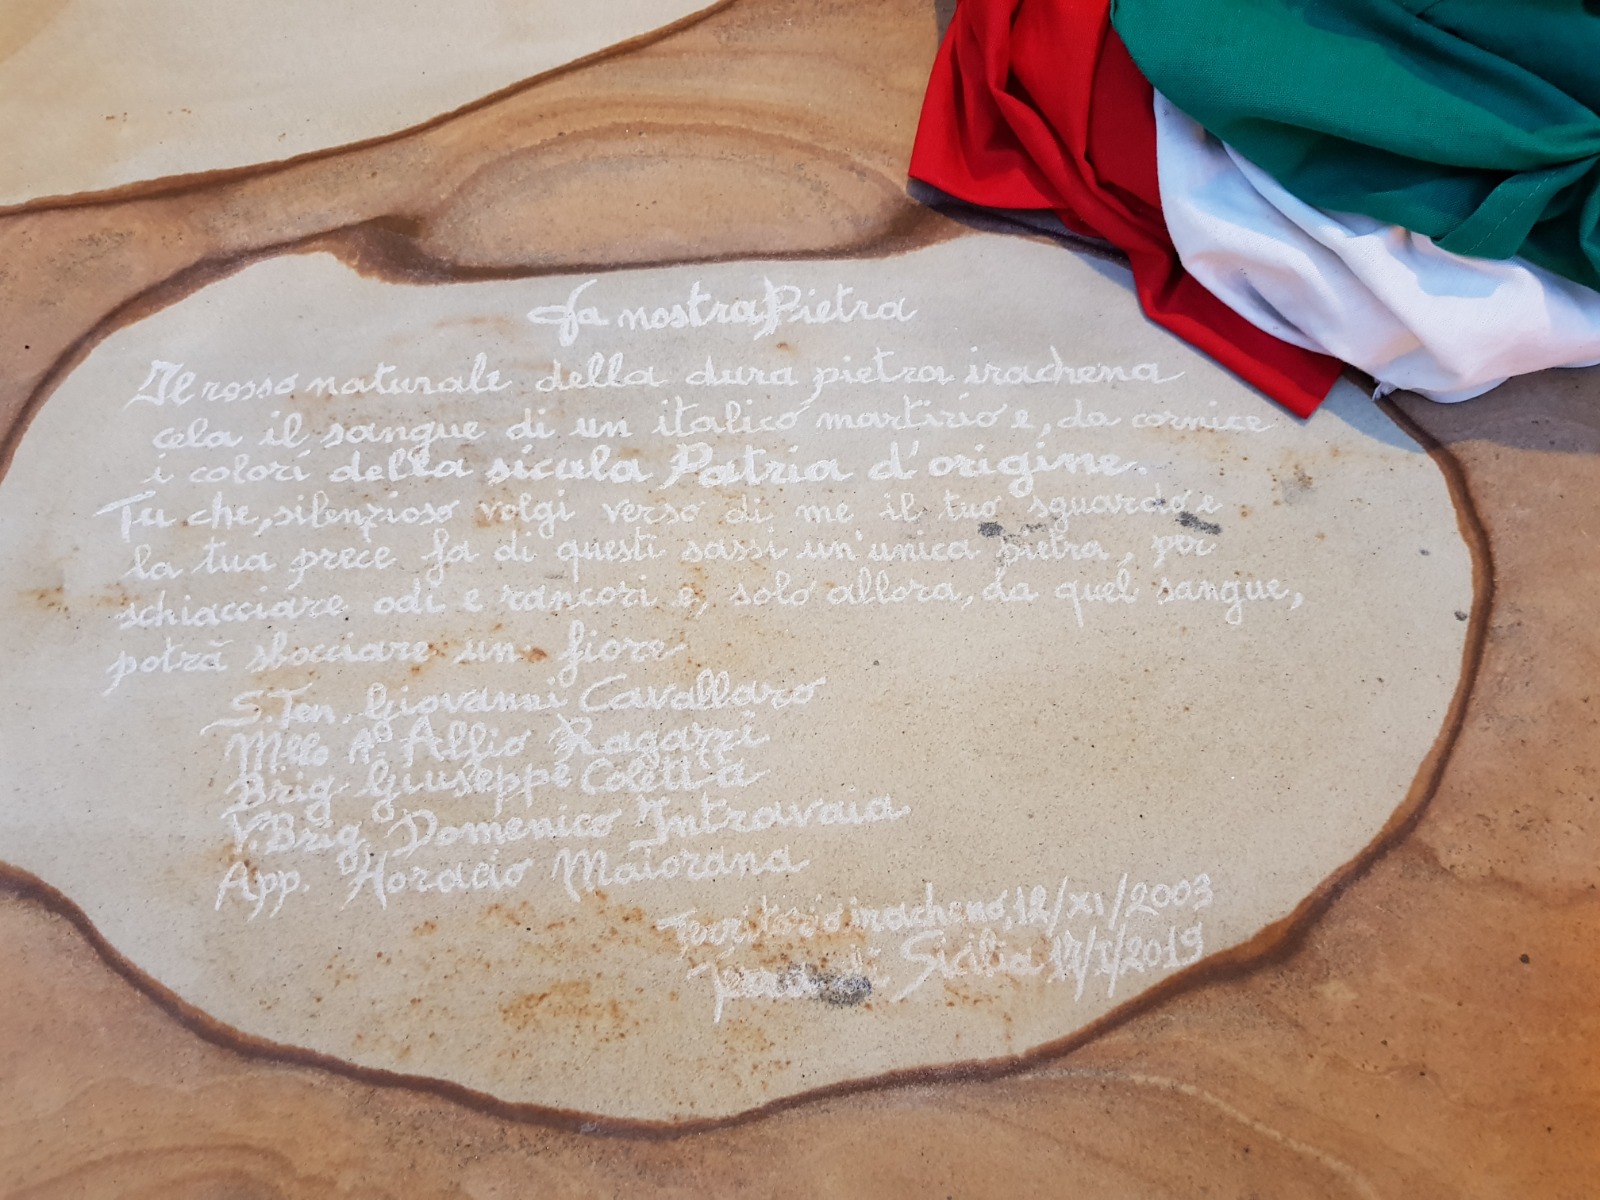 La nostra Pietra
Il rosso naturale della dura pietra irachena
cela il sangue di un italico martirio e, da cornice
i colori della sicula Patria d'origine.
Tu che, silenzioso volgi verso di me il tuo sguardo e
la tua prece fa di questi sassi un'unica pietra, per
schiacciare odi e rancori e, solo allora, da quel sangue,
potrà sbocciare un fiore
S.Ten. Giovanni Cavallaro
Mllo A° Alfio Ragazzi
Brig Giuseppe Coletta
V.Brig. Domenico Intravaia
App. Horacio Maiorana
Territorio iracheno, 12/XI/2003
di Sicilia 17/I/2019